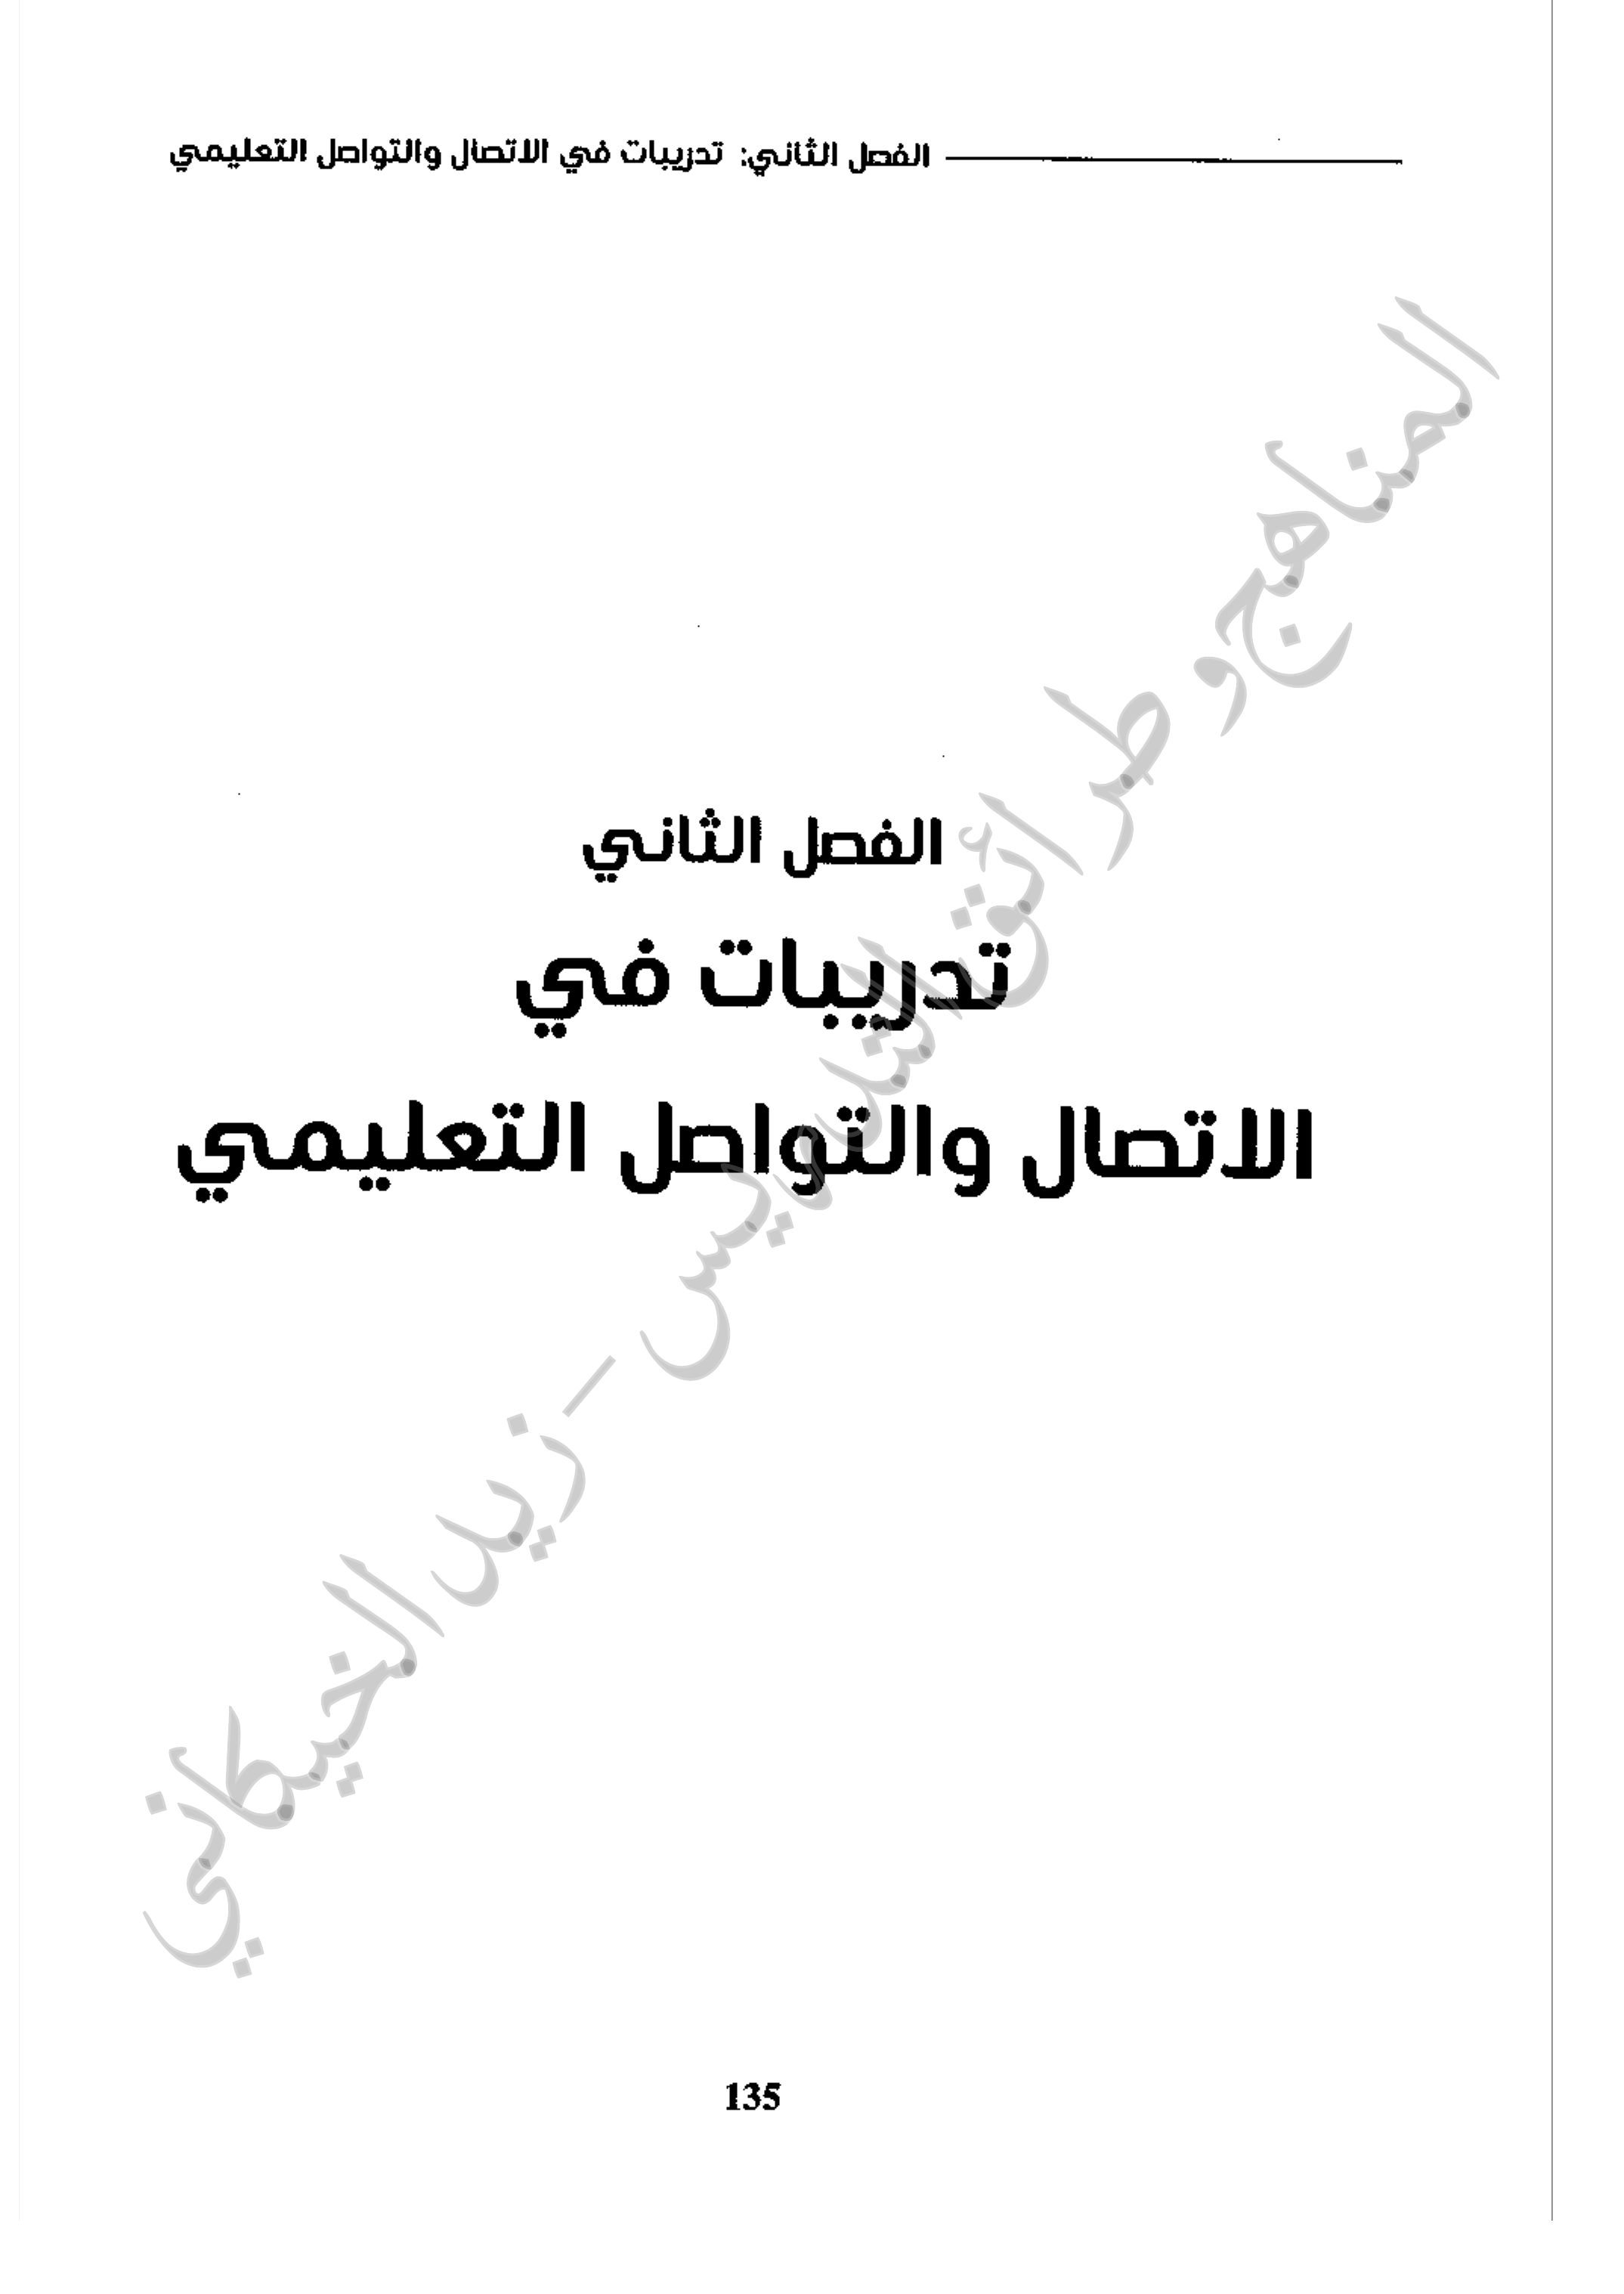 الفصل الثاني: تدريبات في الاتصال والتواصل التعليمي
الفصل الثاني
تدريبات في
الاتصال والتواصل التعليمي
المناهج و طرائق التدريس - زيد الخيكاني
135